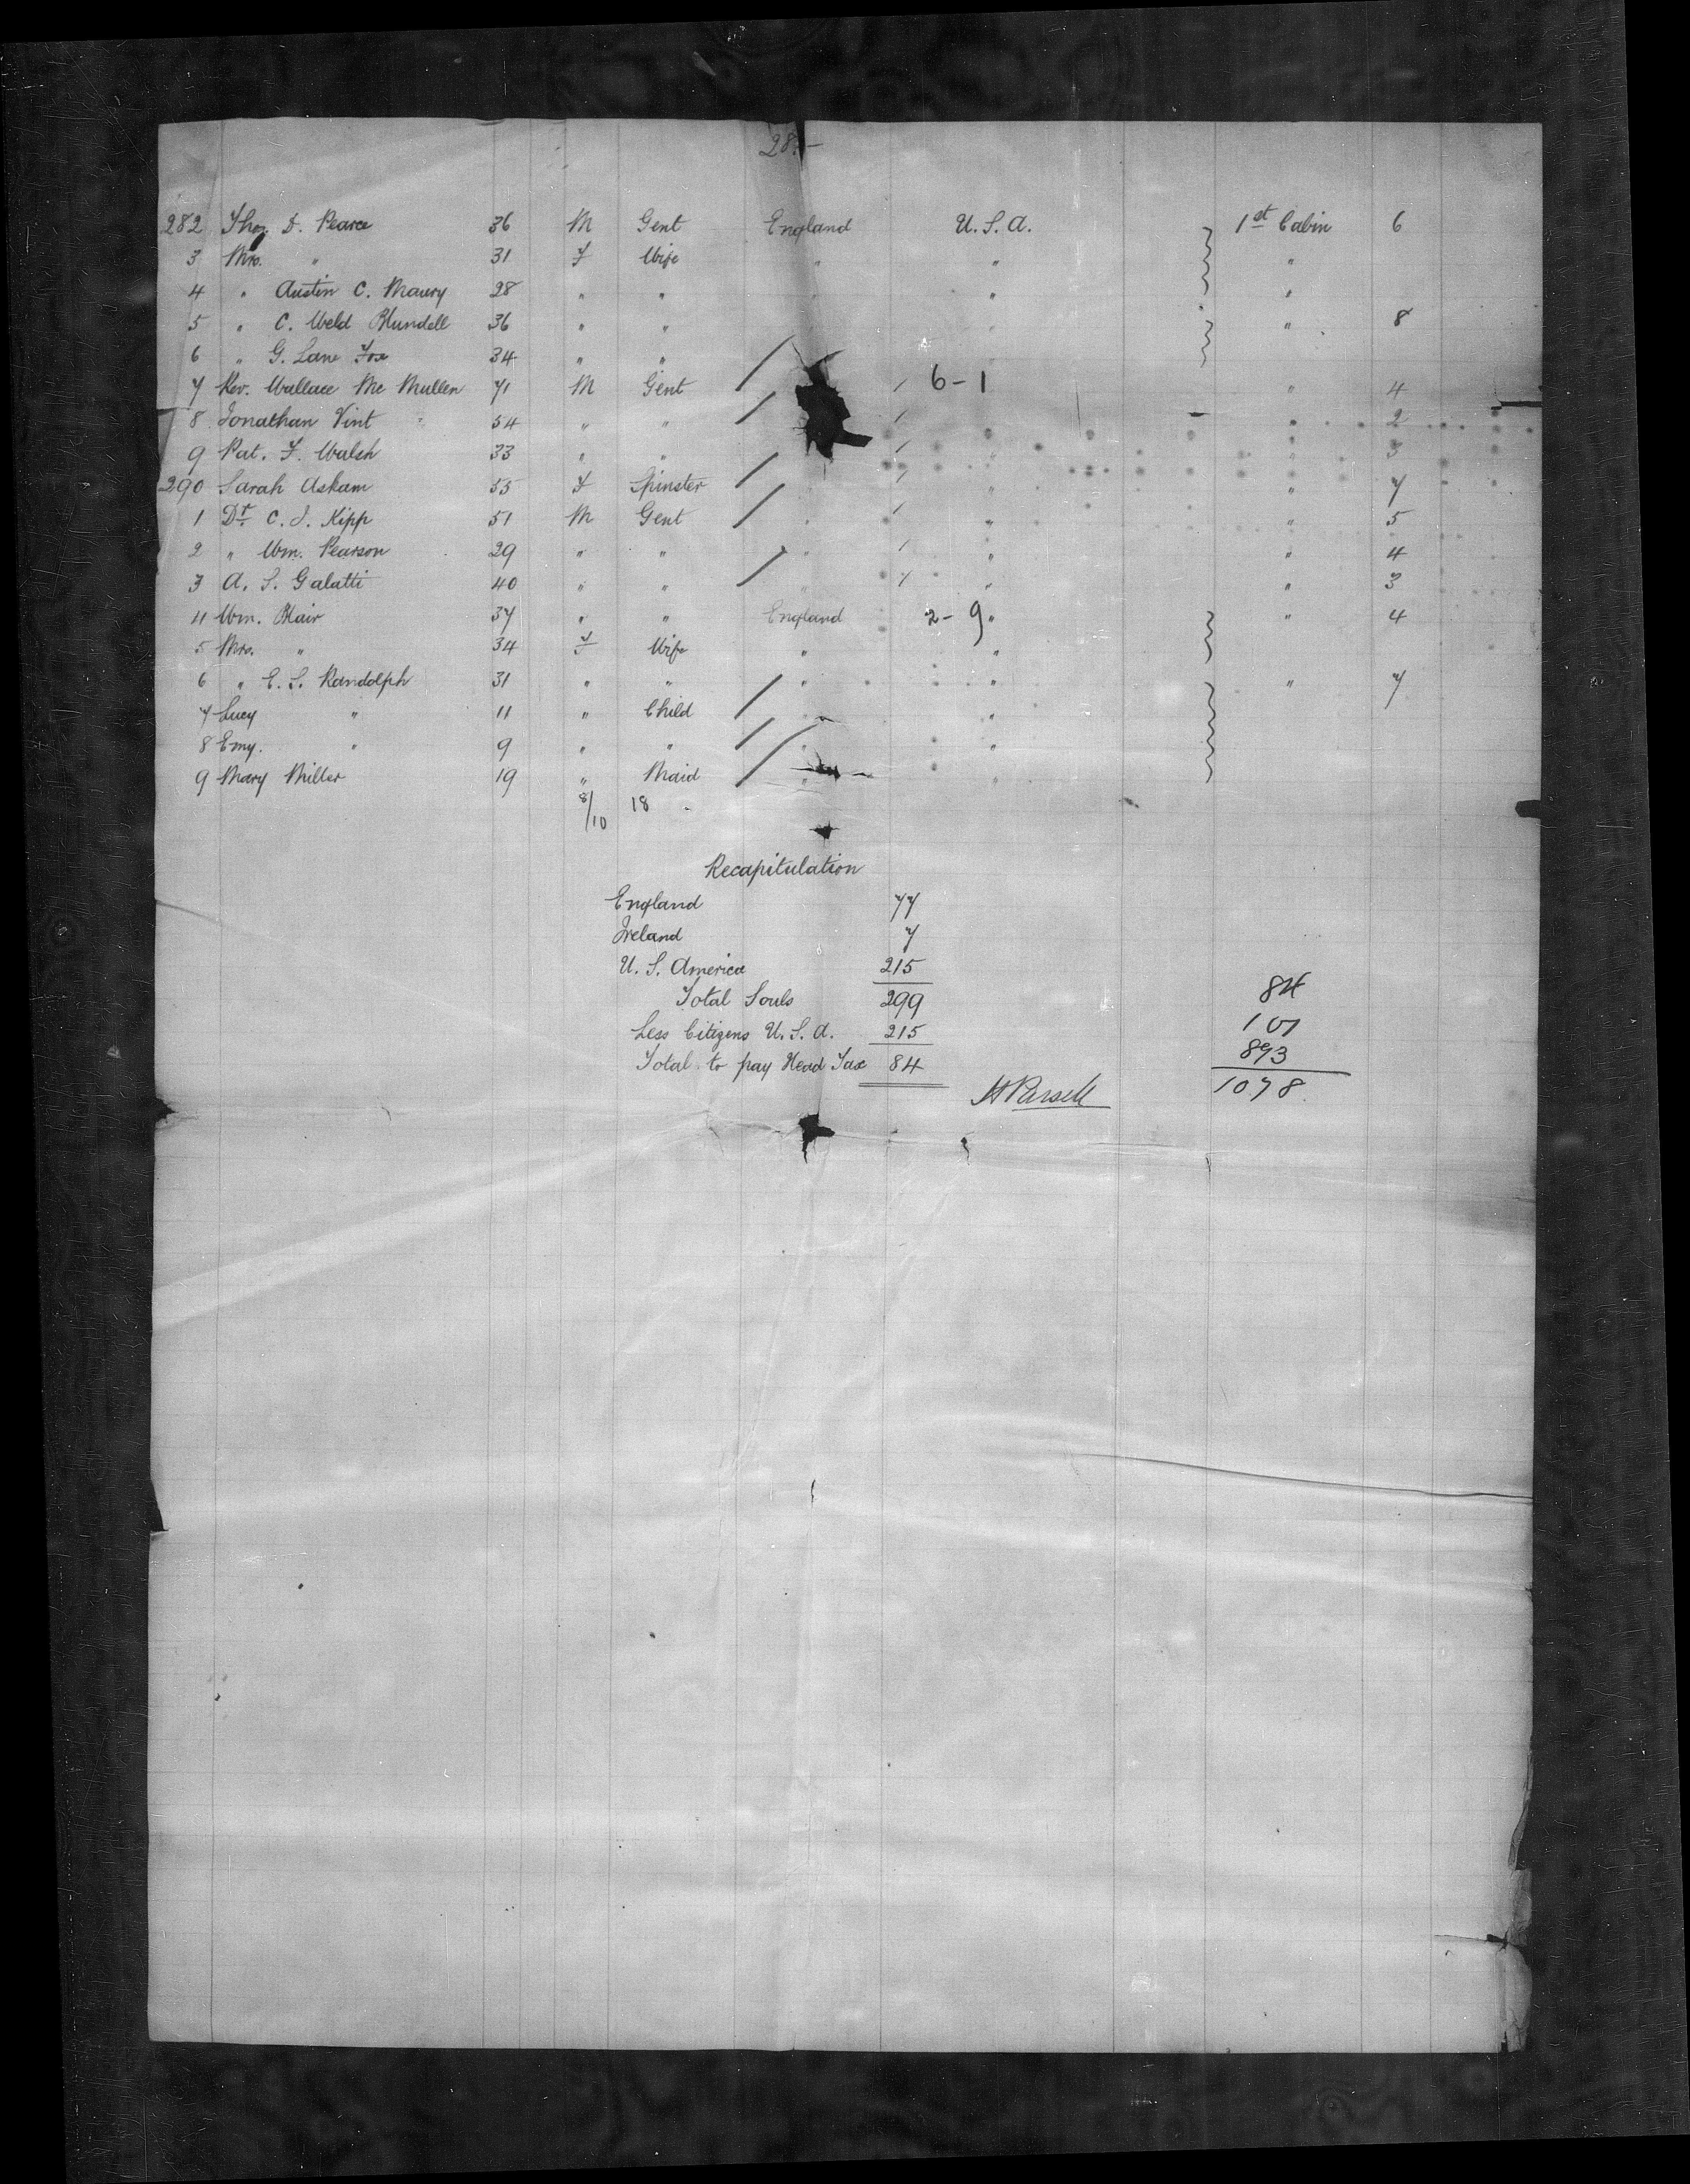 28.-
282 Thos D. Pearce 36 M Gent England U.S.A. 1st Cabin 6
3 Mrs. " 31 F Wife " " "
4 " Austin C. Maury 28 " " " " "
5 " C. Weld Blundell 36 " " " " " 8
6 " G. Lane Fox 34 " "
7 Rev. Wallace Mc Mullen 71 M Gent / / 6-1 " 4
8 Jonathan Vint 54 " " / / " 2
9 Pat. F. Walsh 33 " " / " " 3
290 Sarah Askam 55 F Spinster / " / " " 7
1 Dr. C. J. Kipp 51 M Gent / " / " " 5
2 " Wm. Pearson 29 " " " / " " 4
3 A. S. Galatti 40 " " / " / " " 3
4 Wm. Blair 37 " " England 2-9 " " 4
5 Mrs. " 34 F Wife " "
6 " E. S. Randolph 31 " " " " " 7
7 Lucy " 11 " Child / " "
8 Emy. " 9 " " / " "
9 Mary Miller 19 " Maid / " "
8/10 18
Recapitulation
England 77
Ireland 7
U. S. America 215
Total Souls 299
Less Citizens U.S.A. 215
Total to pay Head Tax 84
84
101
893
1078.
H Parsell